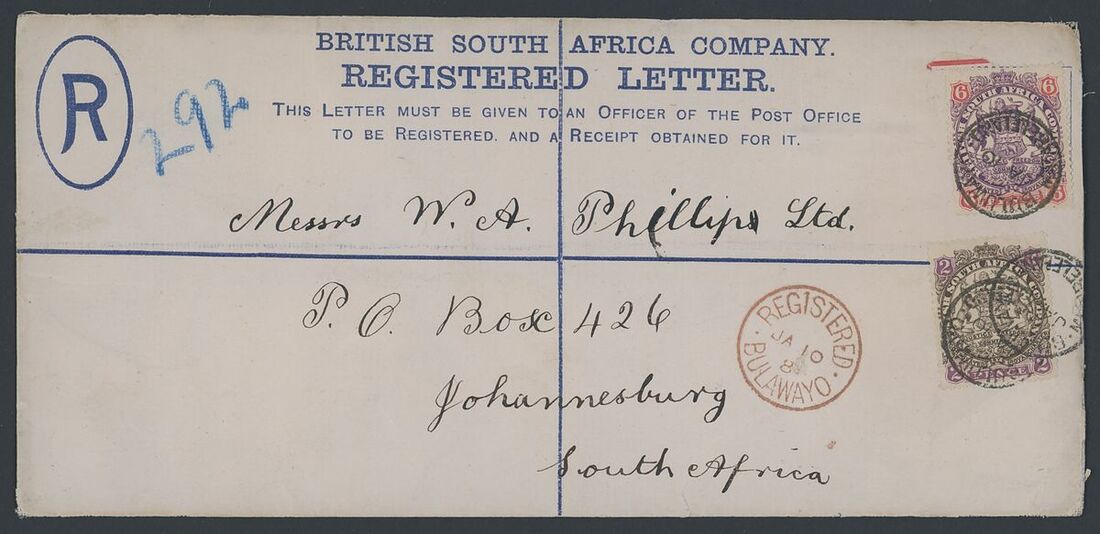 BRITISH SOUTH AFRICA COMPANY.
REGISTERED LETTER.
THIS LETTER MUST BE GIVEN TO AN OFFICER OF THE POST OFFICE
TO BE REGISTERED. AND A RECEIPT OBTAINED FOR IT.
R
292
6 6
Messrs W. A. Phillips Ltd.
2
P. O. Box 426
REGISTERED
JA 10
BULAWAYO
PENCE 2
Johannesburg
South Africa